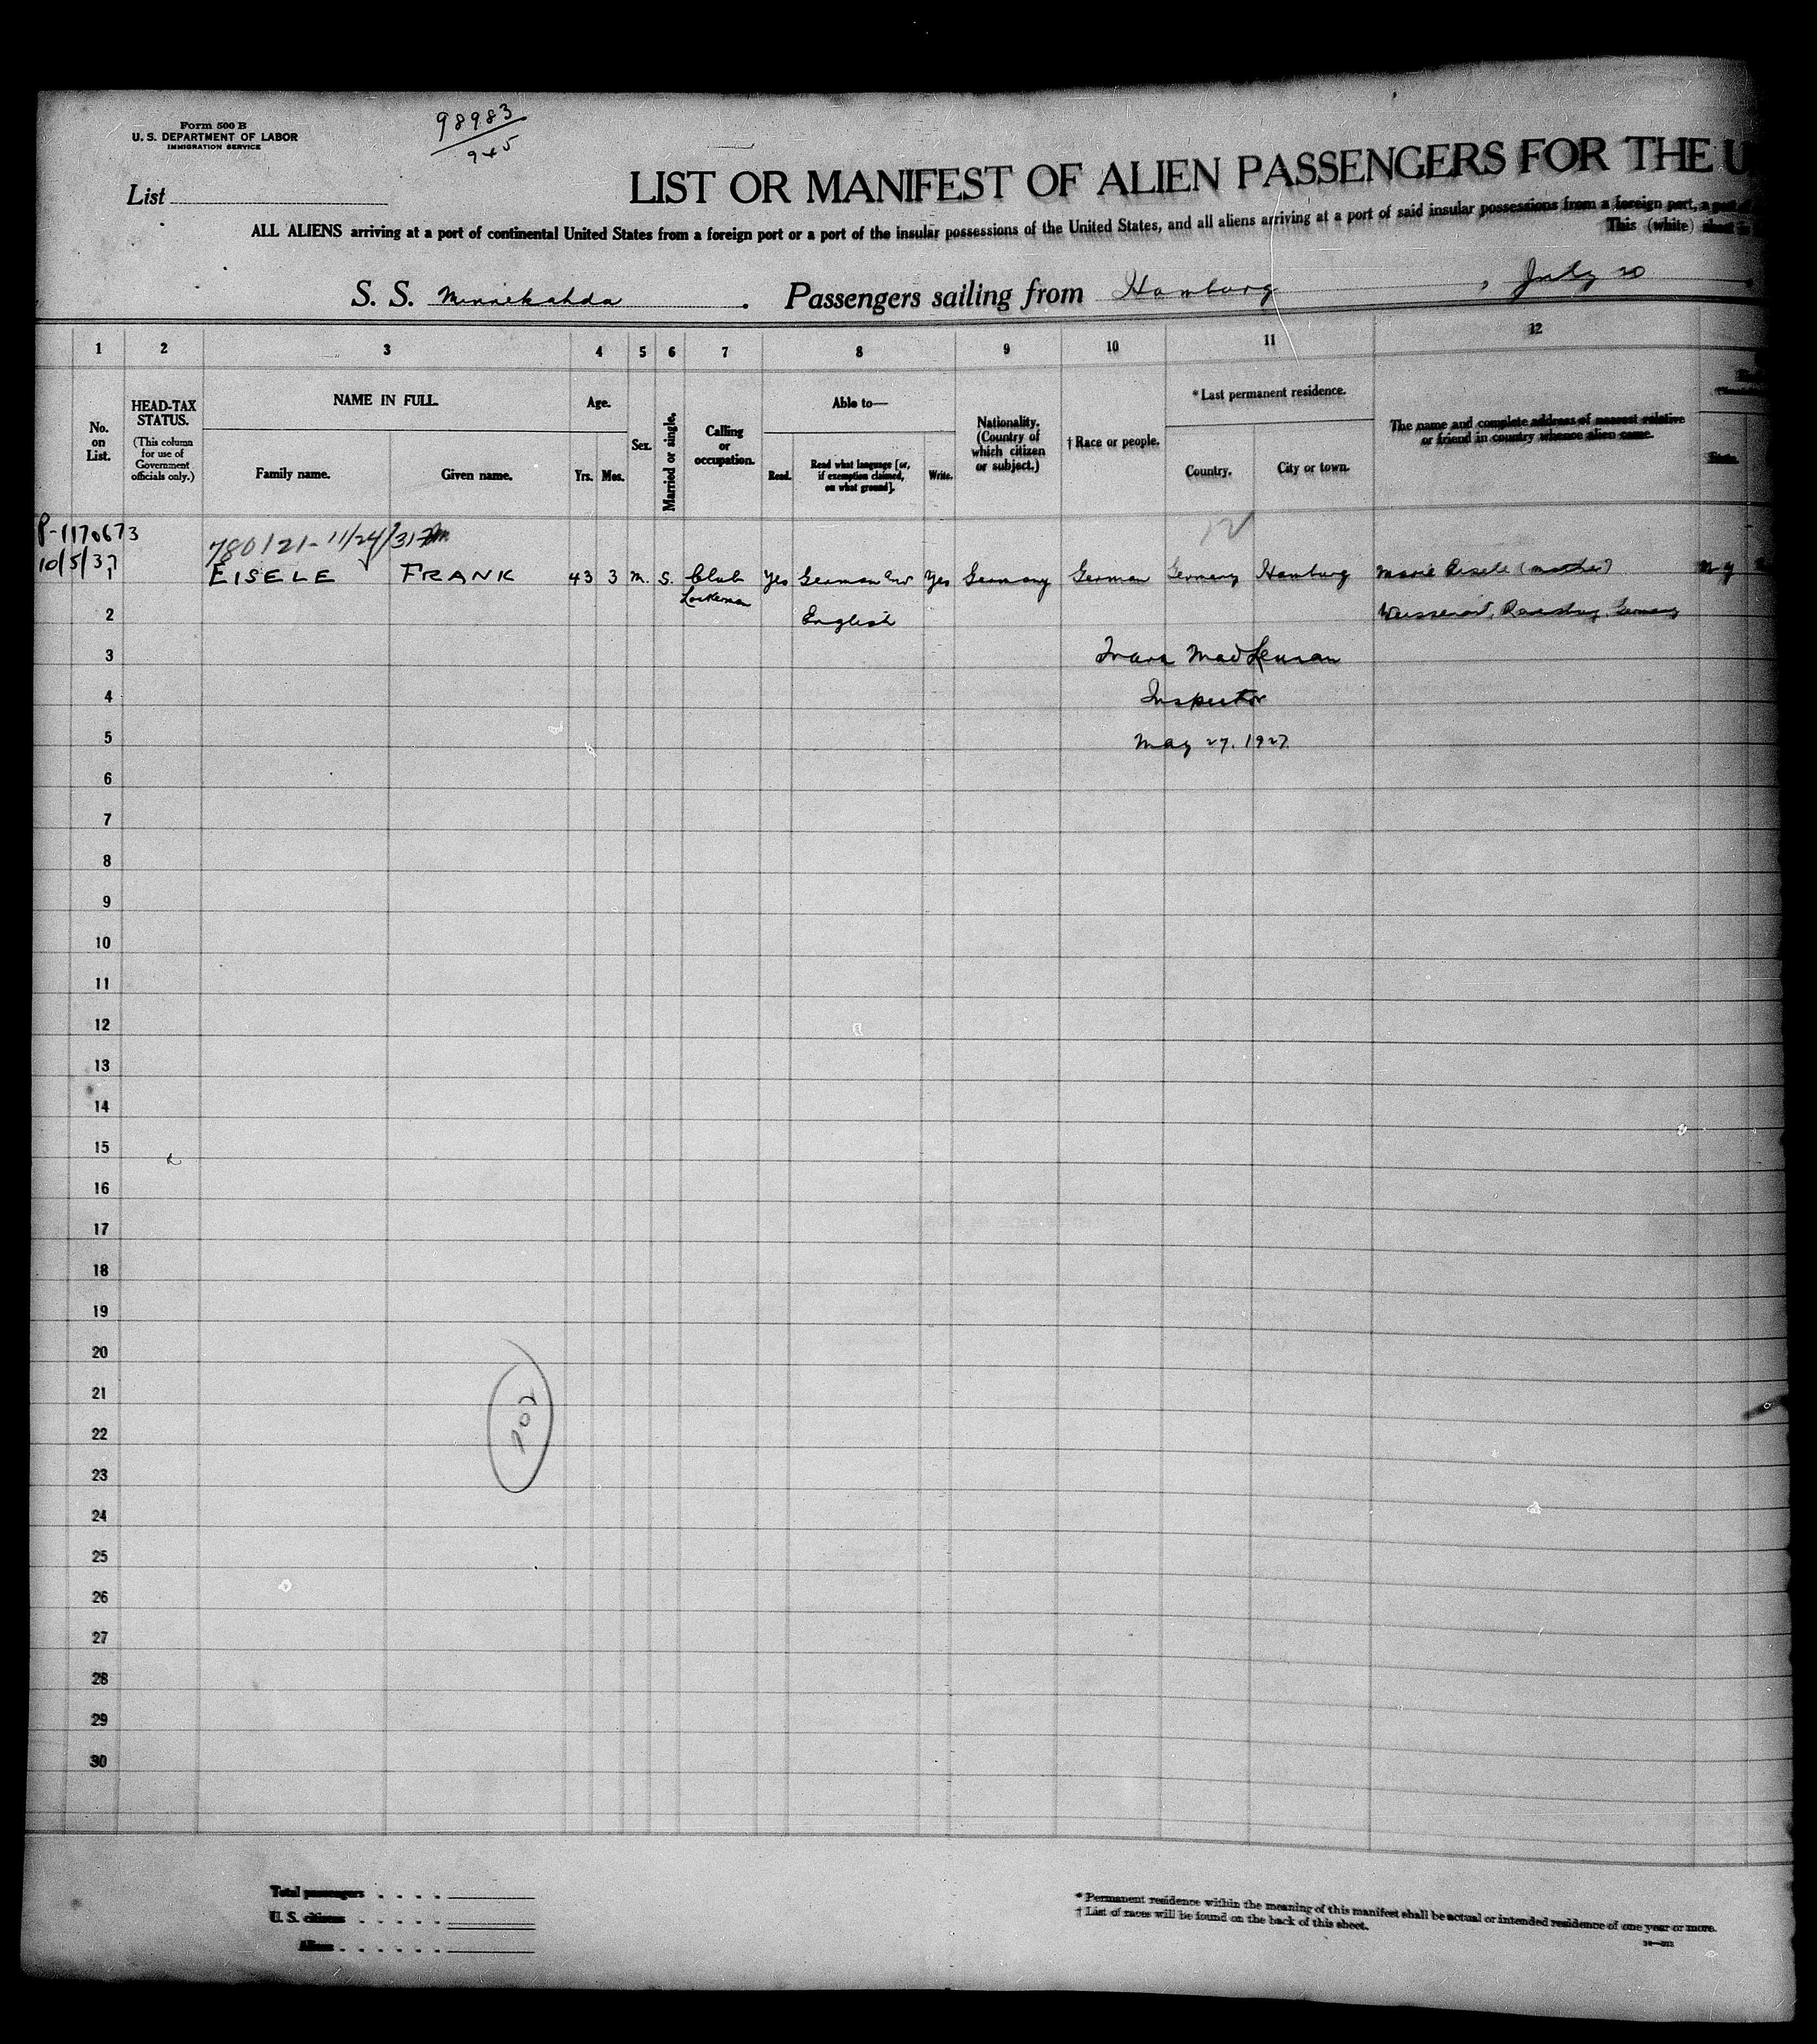 Form 500 B
U. S. DEPARTMENT OF LABOR
IMMIGRATION SERVICE
98983
945
List
LIST OR MANIFEST OF ALIEN PASSENGERS FOR THE U
ALL ALIENS arriving at a port of continental United States from a foreign port or a port of the insular possessions of the United States, and all aliens arriving at a port of said insular possessions from a foreign port, a port of
This (white) sheet is
S. S. Minnekahda . Passengers sailing from Hamburg , July 20
1 2 3 4 5 6 7 8 9 10 11 12
No. on List.
HEAD-TAX STATUS.
(This column for use of Government officials only.)
NAME IN FULL.
Family name. Given name.
Age.
Yrs. Mos.
Sex.
Married or single.
Calling or occupation.
Able to—
Read. Read what language [or, if exemption claimed, on what ground]. Write.
Nationality. (Country of which citizen or subject.)
† Race or people.
* Last permanent residence.
Country. City or town.
The name and complete address of nearest relative or friend in country whence alien came.
State.
P-1170673
10/5/37
780121- 11/24/31
1 EISELE FRANK 43 3 M. S. Club Yes German and Yes Germany German Germany Hamburg Marie Eisele (mother) N Y
2 English Germany
3
4 Inspector
5 May 27. 1927.
6
7
8
9
10
11
12
13
14
15
16
17
18
19
20
21
22
23
24
25
26
27
28
29
30
702
Total passengers
U. S. citizens
Aliens
* Permanent residence within the meaning of this manifest shall be actual or intended residence of one year or more.
† List of races will be found on the back of this sheet.